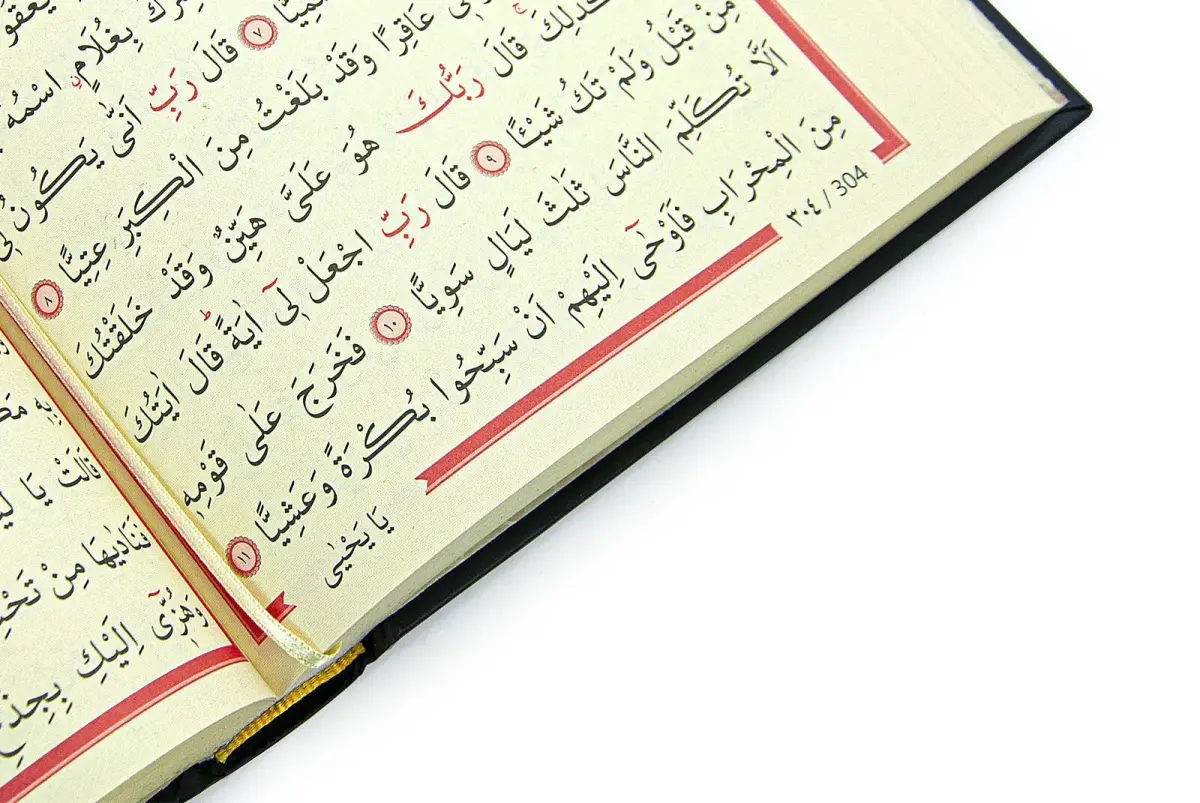 بِغُلَامٍۨ اسْمُهُ
٧ قَالَ رَبِّ اَنّٰى يَكُونُ ل۪ي
عَاقِرًا وَقَدْ بَلَغْتُ مِنَ الْكِبَرِ عِتِيًّا ٨
كَذٰلِكَۚ قَالَ رَبُّكَ هُوَ عَلَيَّ هَيِّنٌ وَقَدْ خَلَقْتُكَ
مِنْ قَبْلُ وَلَمْ تَكُ شَيْـًٔا ٩ قَالَ رَبِّ اجْعَلْ ل۪ٓي اٰيَةًۜ قَالَ اٰيَتُكَ
اَلَّا تُكَلِّمَ النَّاسَ ثَلٰثَ لَيَالٍ سَوِيًّا ١٠ فَخَرَجَ عَلٰى قَوْمِه۪
مِنَ الْمِحْرَابِ فَاَوْحٰٓى اِلَيْهِمْ اَنْ سَبِّحُوا بُكْرَةً وَعَشِيًّا ١١
يَا يَحْيٰى
٣٠٤ / 304
بِه۪
قَالَتْ يَا
فَنَادٰيهَا مِنْ
وَهُزّ۪ٓي اِلَيْكِ بِجِذْعِ